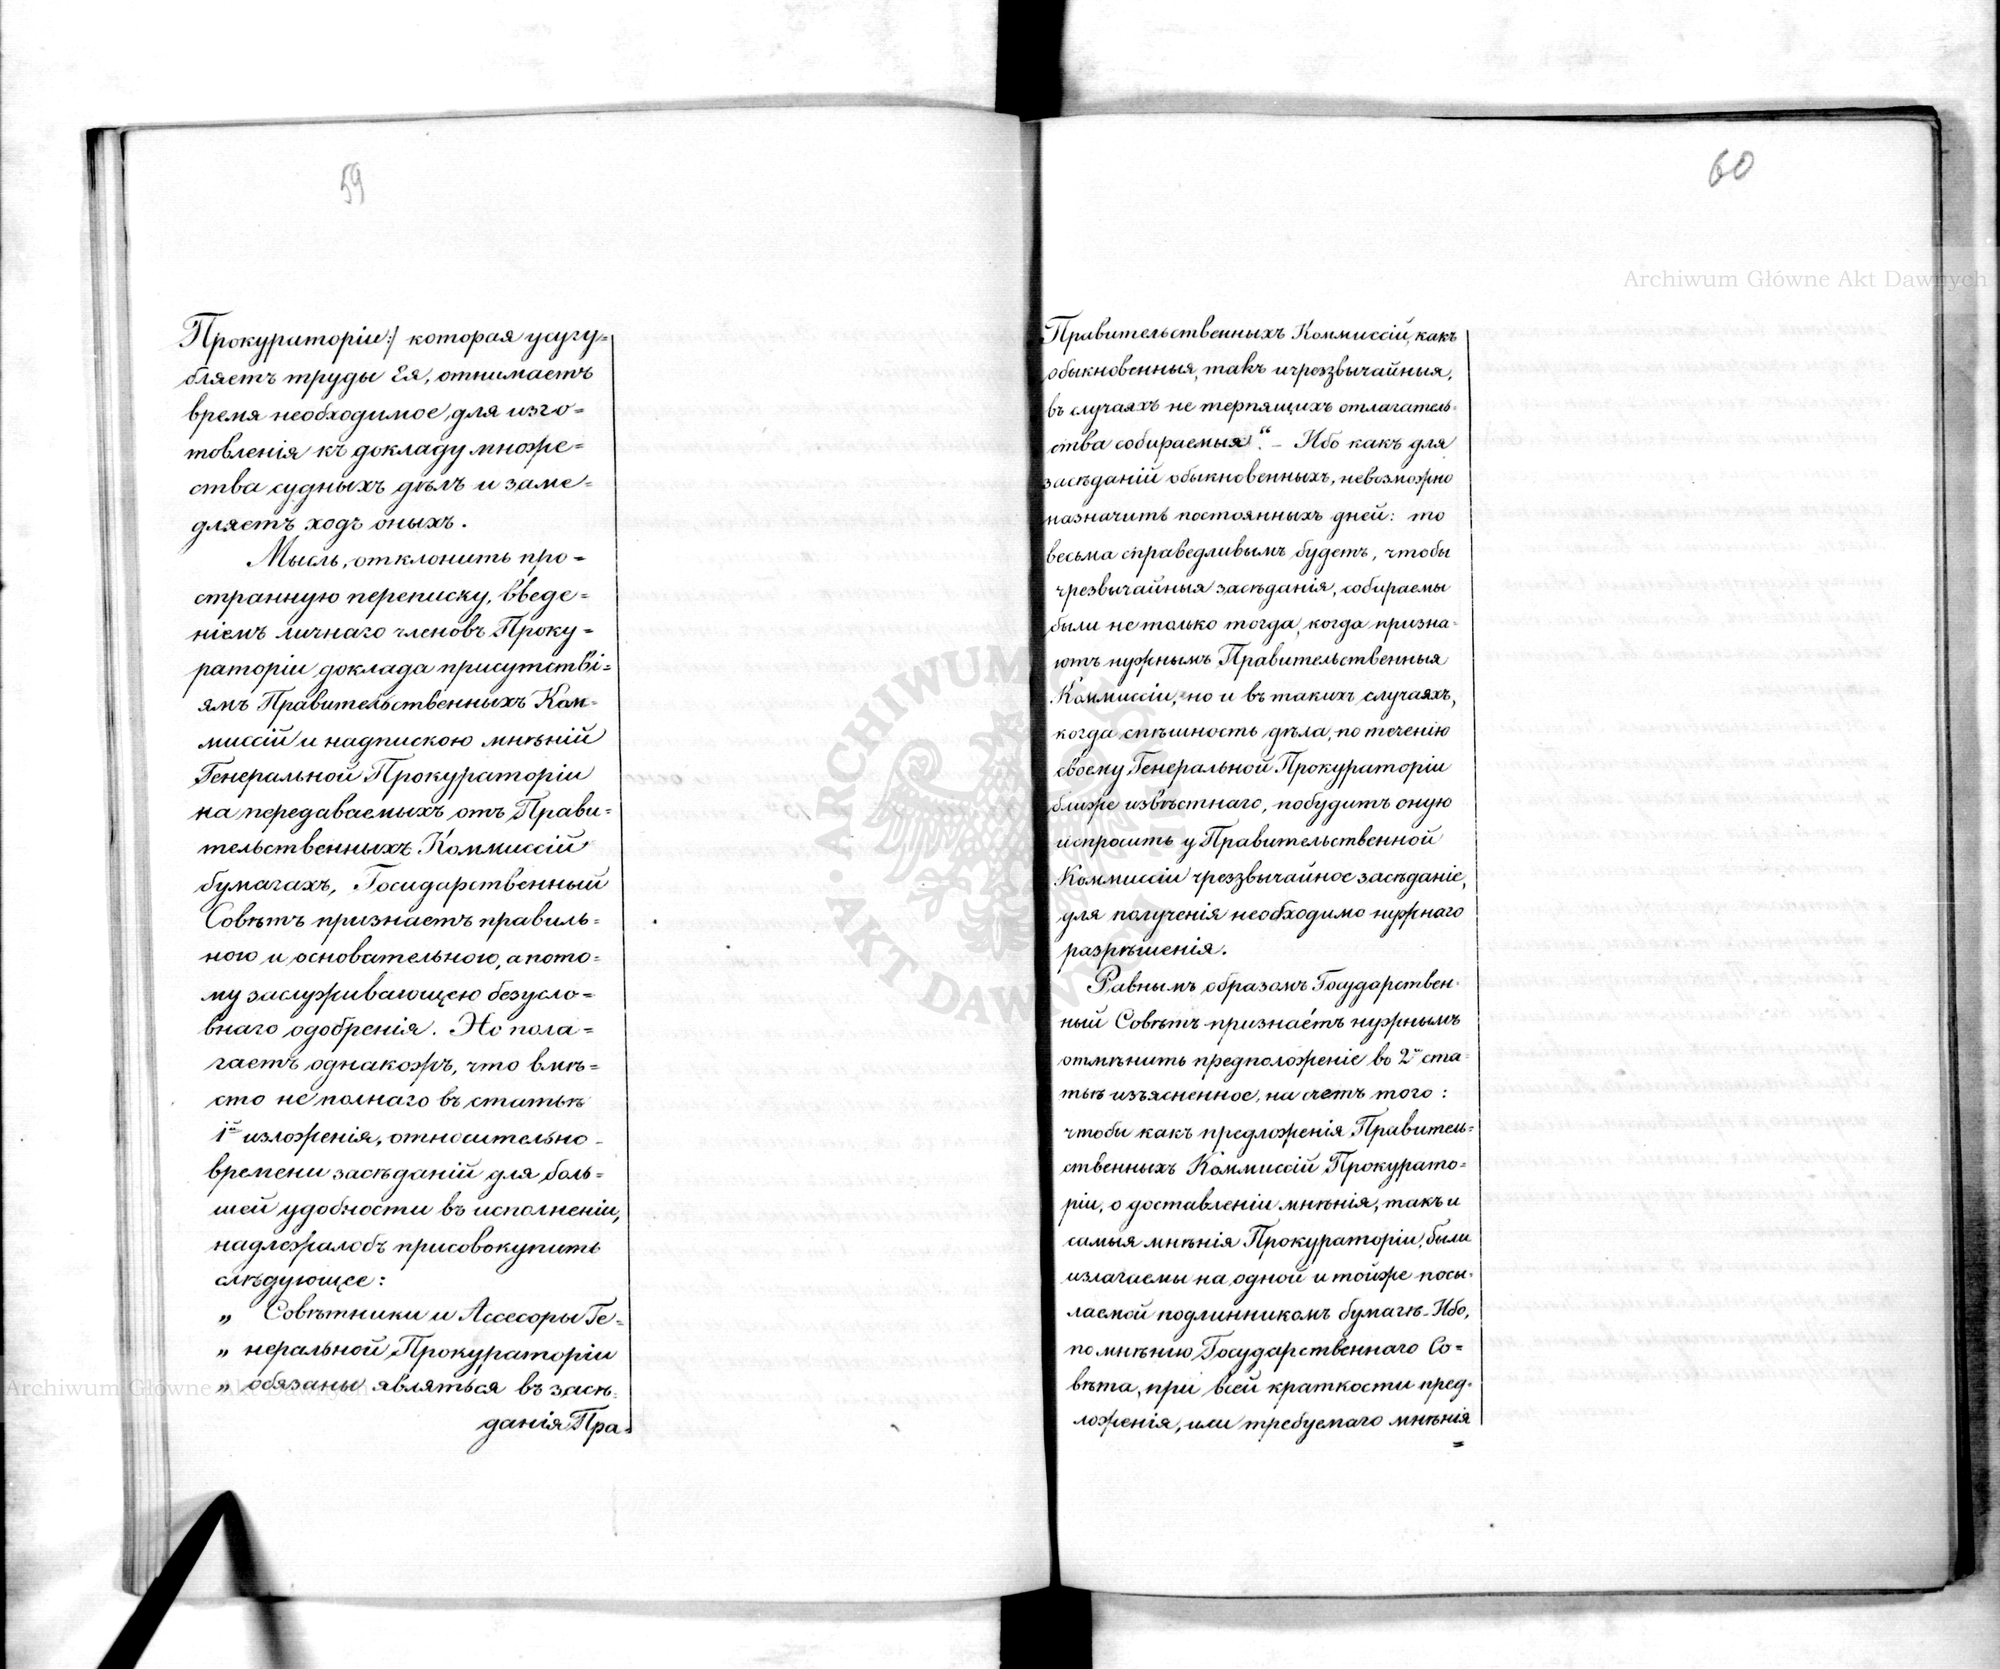 59
Прокураторіи:/ которая усугу=
бляетъ труды Ея, отнимаетъ
время необходимое для изго=
товленія къ докладу множе=
ства судныхъ дѣлъ и заме=
дляетъ ходъ оныхъ.
Мысль, отклонить про=
странную переписку, введе=
ніемъ личнаго членовъ Проку=
раторіи доклада присутстві=
ямъ Правительственныхъ Ком=
миссій и надпискою мнѣній
Генеральной Прокураторіи
на передаваемыхъ отъ Прави=
тельственныхъ Коммиссій
бумагахъ, Государственный
Совѣтъ признаетъ правиль=
ною и основательною, а пото=
му заслуживающею безусло=
внаго одобренія. Но пола=
гаетъ однакожъ, что вмѣ=
сто не полнаго въ статьѣ
1й изложенія, относительно
времени засѣданій для боль=
шей удобности въ исполненіи,
надлежалобъ присовокупить
слѣдующее:
„ Совѣтники и Ассесоры Ге=
„ неральной Прокураторіи
„ обязаны являться въ засѣ=
данія Пра=
60
Правительственныхъ Коммиссій, какъ
обыкновенныя, такъ и чрезвычайныя,
въ случаяхъ не терпящихъ отлагатель=
ства собираемыя“. – Ибо какъ для
засѣданій обыкновенныхъ, невозможно
назначить постоянныхъ дней: то
весьма справедливымъ будетъ, чтобы
чрезвычайныя засѣданія, собираемы
были не только тогда, когда призна=
ютъ нужнымъ Правительственныя
Коммиссіи, но и въ такихъ случаяхъ,
когда спѣшность дѣла, по теченію
своему Генеральной Прокураторіи
ближе извѣстнаго, побудитъ оную
испросить у Правительственной
Коммиссіи чрезвычайное засѣданіе,
для полученія необходимо нужнаго
разрѣшенія.
Равнымъ образомъ Государствен=
ный Совѣтъ признаетъ нужнымъ
отмѣнить предположеніе во 2й ста=
тьѣ изъясненное, на счетъ того:
чтобы какъ предложенія Правитель=
ственныхъ Коммиссій Прокурато=
ріи, о доставленіи мнѣнія, такъ и
самыя мнѣнія Прокураторіи, были
излагаемы на одной и тойже посы=
лаемой подлинникомъ бумагѣ. Ибо,
по мнѣнію Государственнаго Со=
вѣта, при всей краткости пред=
ложенія, или требуемаго мнѣнія
=
Archiwum Główne Akt Dawnych
Archiwum Główne Akt Dawnych
ARCHIWUM GŁÓWNE AKT DAWNYCH